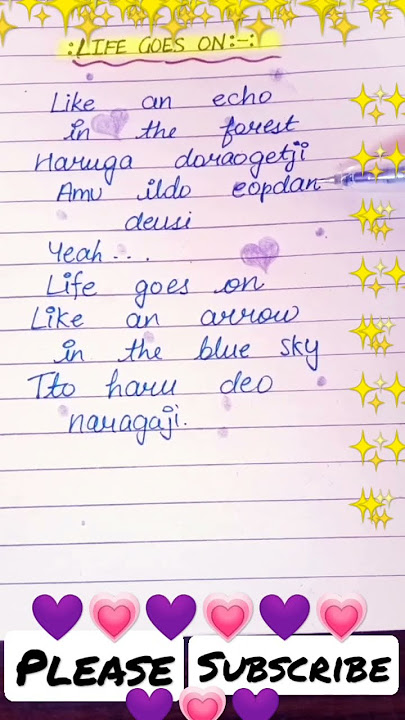 :LIFE GOES ON:-:
Like an echo
in the forest
Haruga doraogetji
Amu ildo eopdan
deusi
Yeah...
Life goes on
Like an arrow
in the blue sky
Tto haru deo
naragaji.
PLEASE SUBSCRIBE